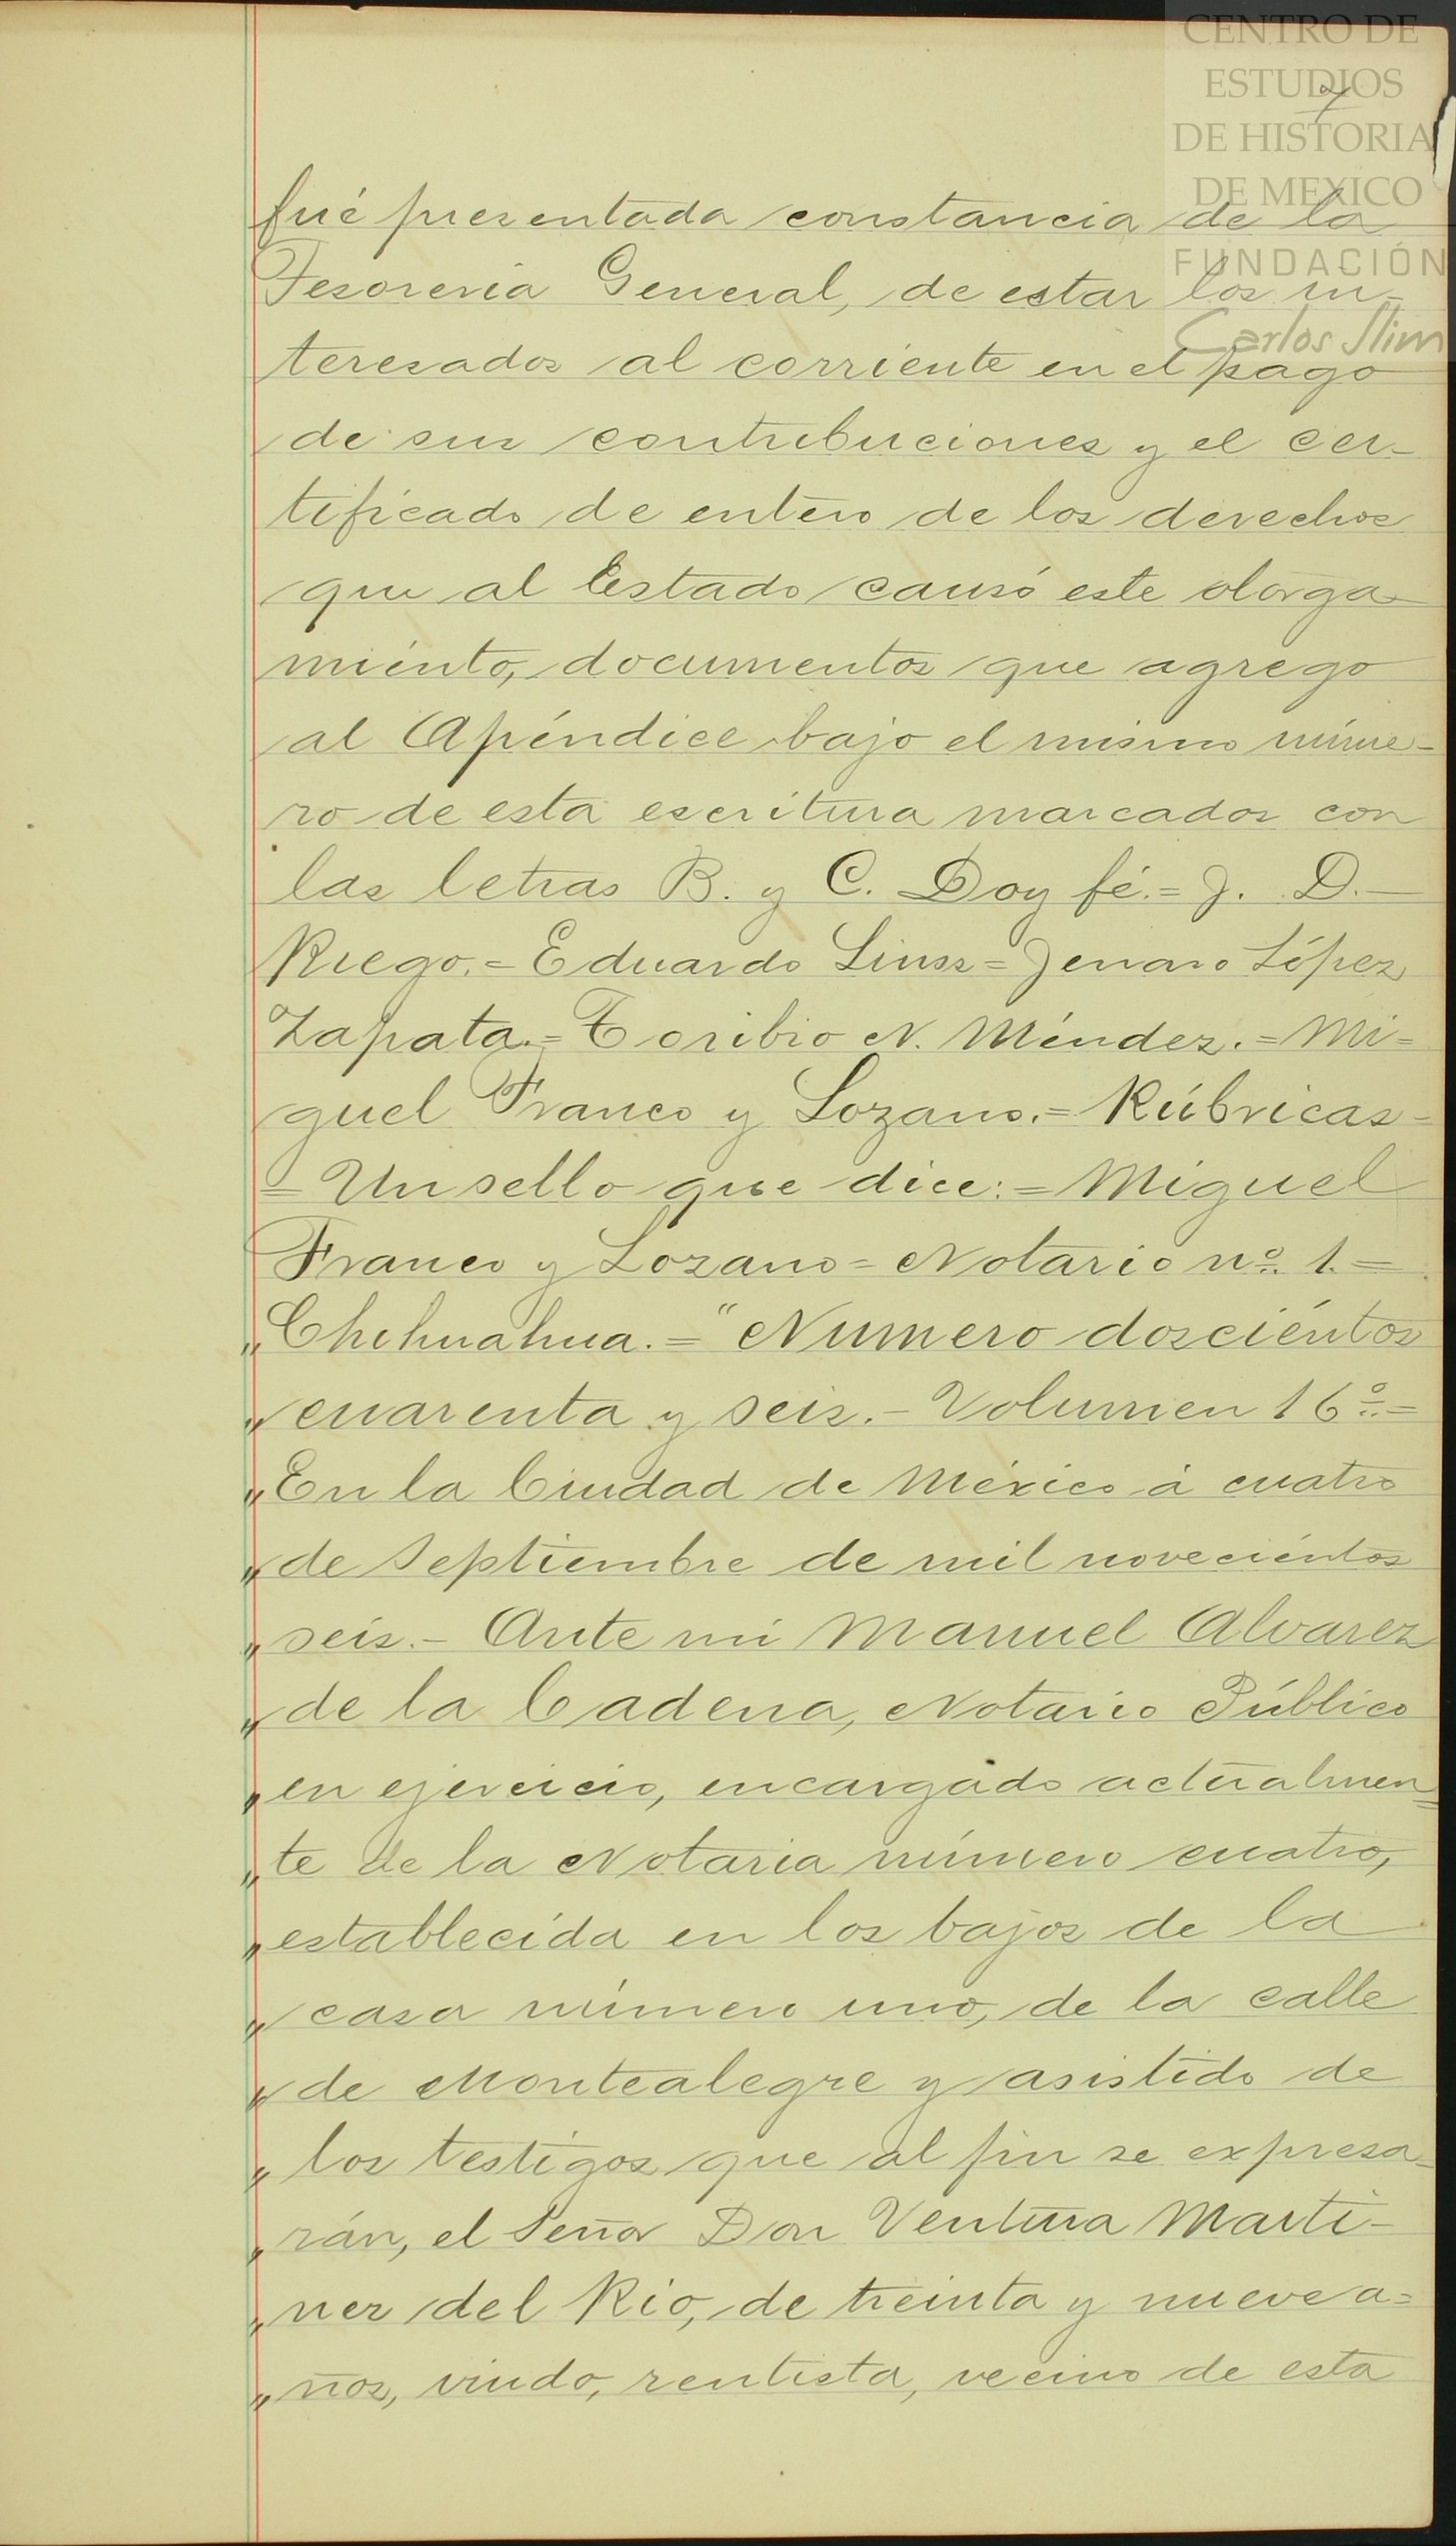 CENTRO DE
ESTUDIOS
DE HISTORIA
DE MEXICO
FUNDACIÓN
Carlos Slim
7
fué presentada constancia de la
Tesoreria General, de estar los in-
teresados al corriente en el pago
de sus contribuciones y el cer-
tificado de entero de los derechos
que al Estado causó este otorga-
miento, documentos que agrego
al Apéndice bajo el mismo núme-
ro de esta escritura marcados con
las letras B. y C. Doy fé.= J. D.-
Riego.= Eduardo Linss= Jenaro López
Zapata.= Toribio N. Méndez.= Mi=
guel Franco y Lozano.= Rúbricas=
= Un sello que dice:= Miguel
Franco y Lozano= Notario nº. 1.=
„Chihuahua.= "Numero doscientos
„cuarenta y seis.- Volumen 16º.=
„En la Ciudad de México á cuatro
„de Septiembre de mil novecientos
„seis.- Ante mi Manuel Alvarez
„de la Cadena, Notario Público
„en ejercicio, encargado actualmen=
„te de la Notaria número cuatro,
„establecida en los bajos de la
„casa número uno, de la calle
„de Montealegre y asistido de
„los testigos que al fin se expresa-
„rán, el Señor Don Ventura Marti-
„nez del Rio, de treinta y nueve a=
„ños, viudo, rentista, vecino de esta